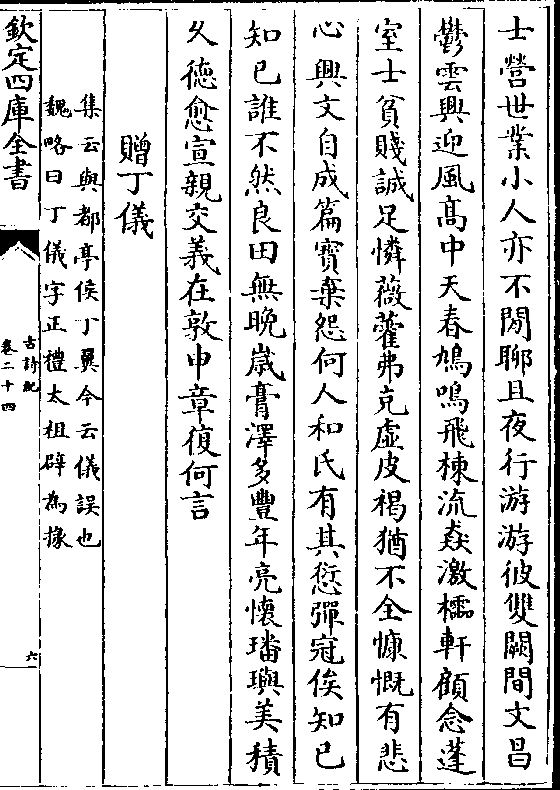 士營世業小人亦不閒聊且夜行游游彼雙闕間文昌
鬱雲興迎風髙中天春鳩鳴飛棟流猋激櫺軒顧念蓬
室士貧賤誠足憐薇藿弗克虛皮褐猶不全慷慨有悲
心興文自成篇寳棄怨何人和氏有其愆彈冠俟知已
知已誰不然良田無晚嵗膏澤多豐年亮懷璠璵美積
乆德愈宣親交義在敦申章復何言
贈丁儀
集云與都亭侯丁翼今云儀誤也
魏略曰丁儀字正禮太祖辟為掾
欽定四庫全書
古詩紀
卷二十四
六